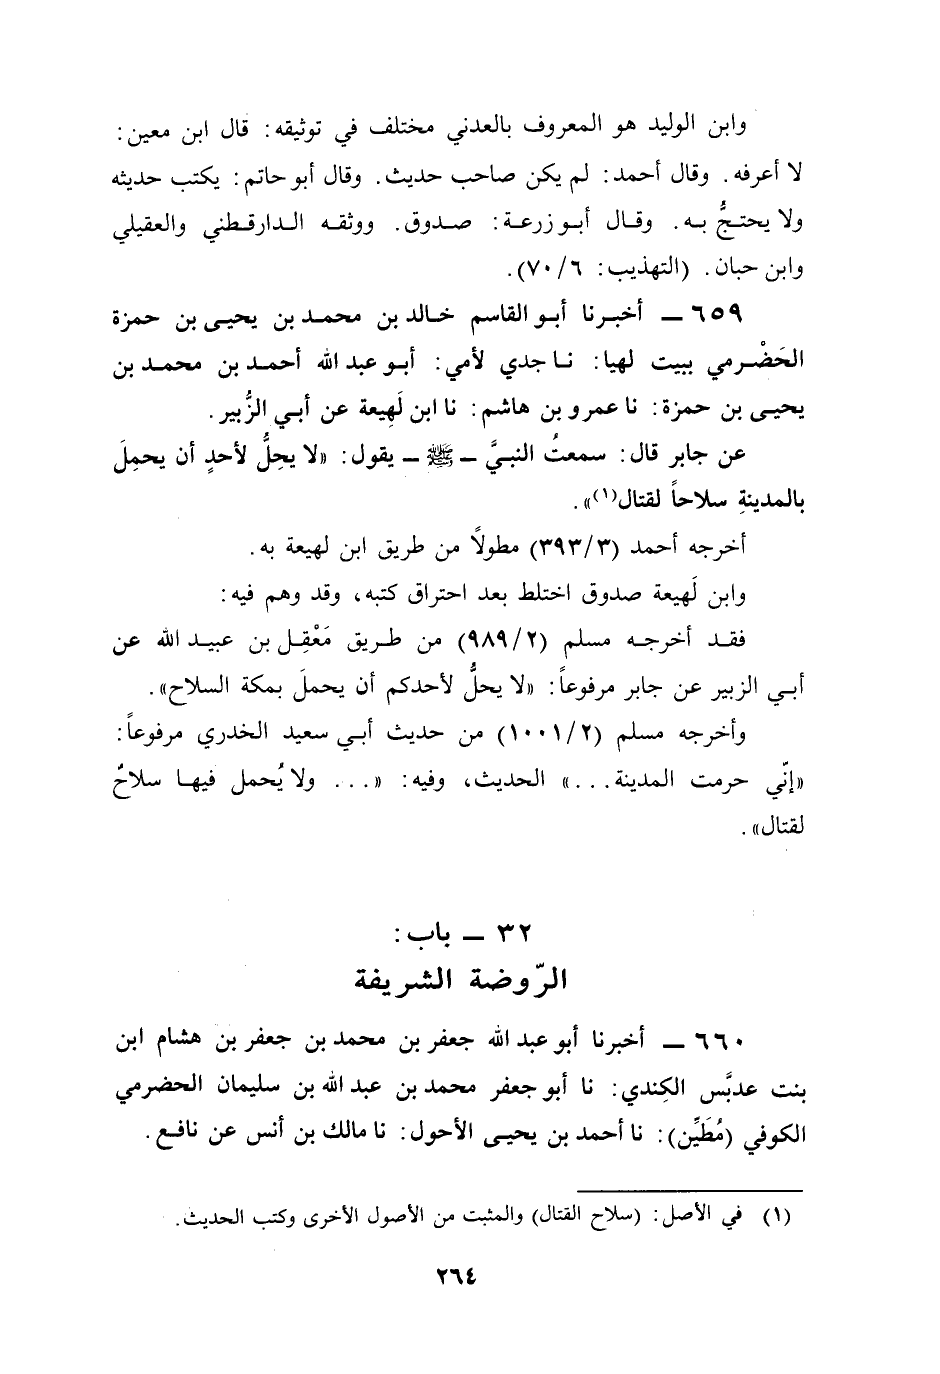 وابن الوليد هو المعروف بالعدني مختلف في توثيقه: قال ابن معين:
لا أعرفه. وقال أحمد: لم يكن صاحب حديث. وقال أبو حاتم: يكتب حديثه
ولا يحتجُّ به. وقال أبو زرعة: صدوق. ووثقه الدارقطني والعقيلي
وابن حبان. (التهذيب: ٧٠/٦).
٦٥٩ ــ أخبرنا أبو القاسم خالد بن محمد بن يحيى بن حمزة
الحَضْرمي ببيت لهيا: نا جدي لأمي: أبو عبد الله أحمد بن محمد بن
يحيى بن حمزة: نا عمرو بن هاشم: نا ابن لَهِيعة عن أبي الزُّبير.
عن جابر قال: سمعتُ النبيَّ ــ ﷺ ــ يقول: «لا يحِلُّ لأحدٍ أن يحمِلَ
بالمدينةِ سلاحاً لقتال(١)».
أخرجه أحمد (٣٩٣/٣) مطولاً من طريق ابن لهيعة به.
وابن لَهيعة صدوق اختلط بعد احتراق كتبه، وقد وهم فيه:
فقد أخرجه مسلم (٩٨٩/٢) من طريق مَعْقِل بن عبيد الله عن
أبي الزبير عن جابر مرفوعاً: «لا يحلُّ لأحدكم أن يحملَ بمكة السلاح».
وأخرجه مسلم (١٠٠١/٢) من حديث أبي سعيد الخدري مرفوعاً:
«إنّي حرمت المدينة...» الحديث، وفيه: «... ولا يُحمل فيها سلاحٌ
لقتال».
٣٢ ــ باب:
الرّوضة الشريفة
٦٦٠ ــ أخبرنا أبو عبد الله جعفر بن محمد بن جعفر بن هشام ابن
بنت عدبَّس الكِندي: نا أبو جعفر محمد بن عبد الله بن سليمان الحضرمي
الكوفي (مُطَيِّن): نا أحمد بن يحيى الأحول: نا مالك بن أنس عن نافع.
(١) في الأصل: (سلاح القتال) والمثبت من الأصول الأخرى وكتب الحديث.
٢٦٤